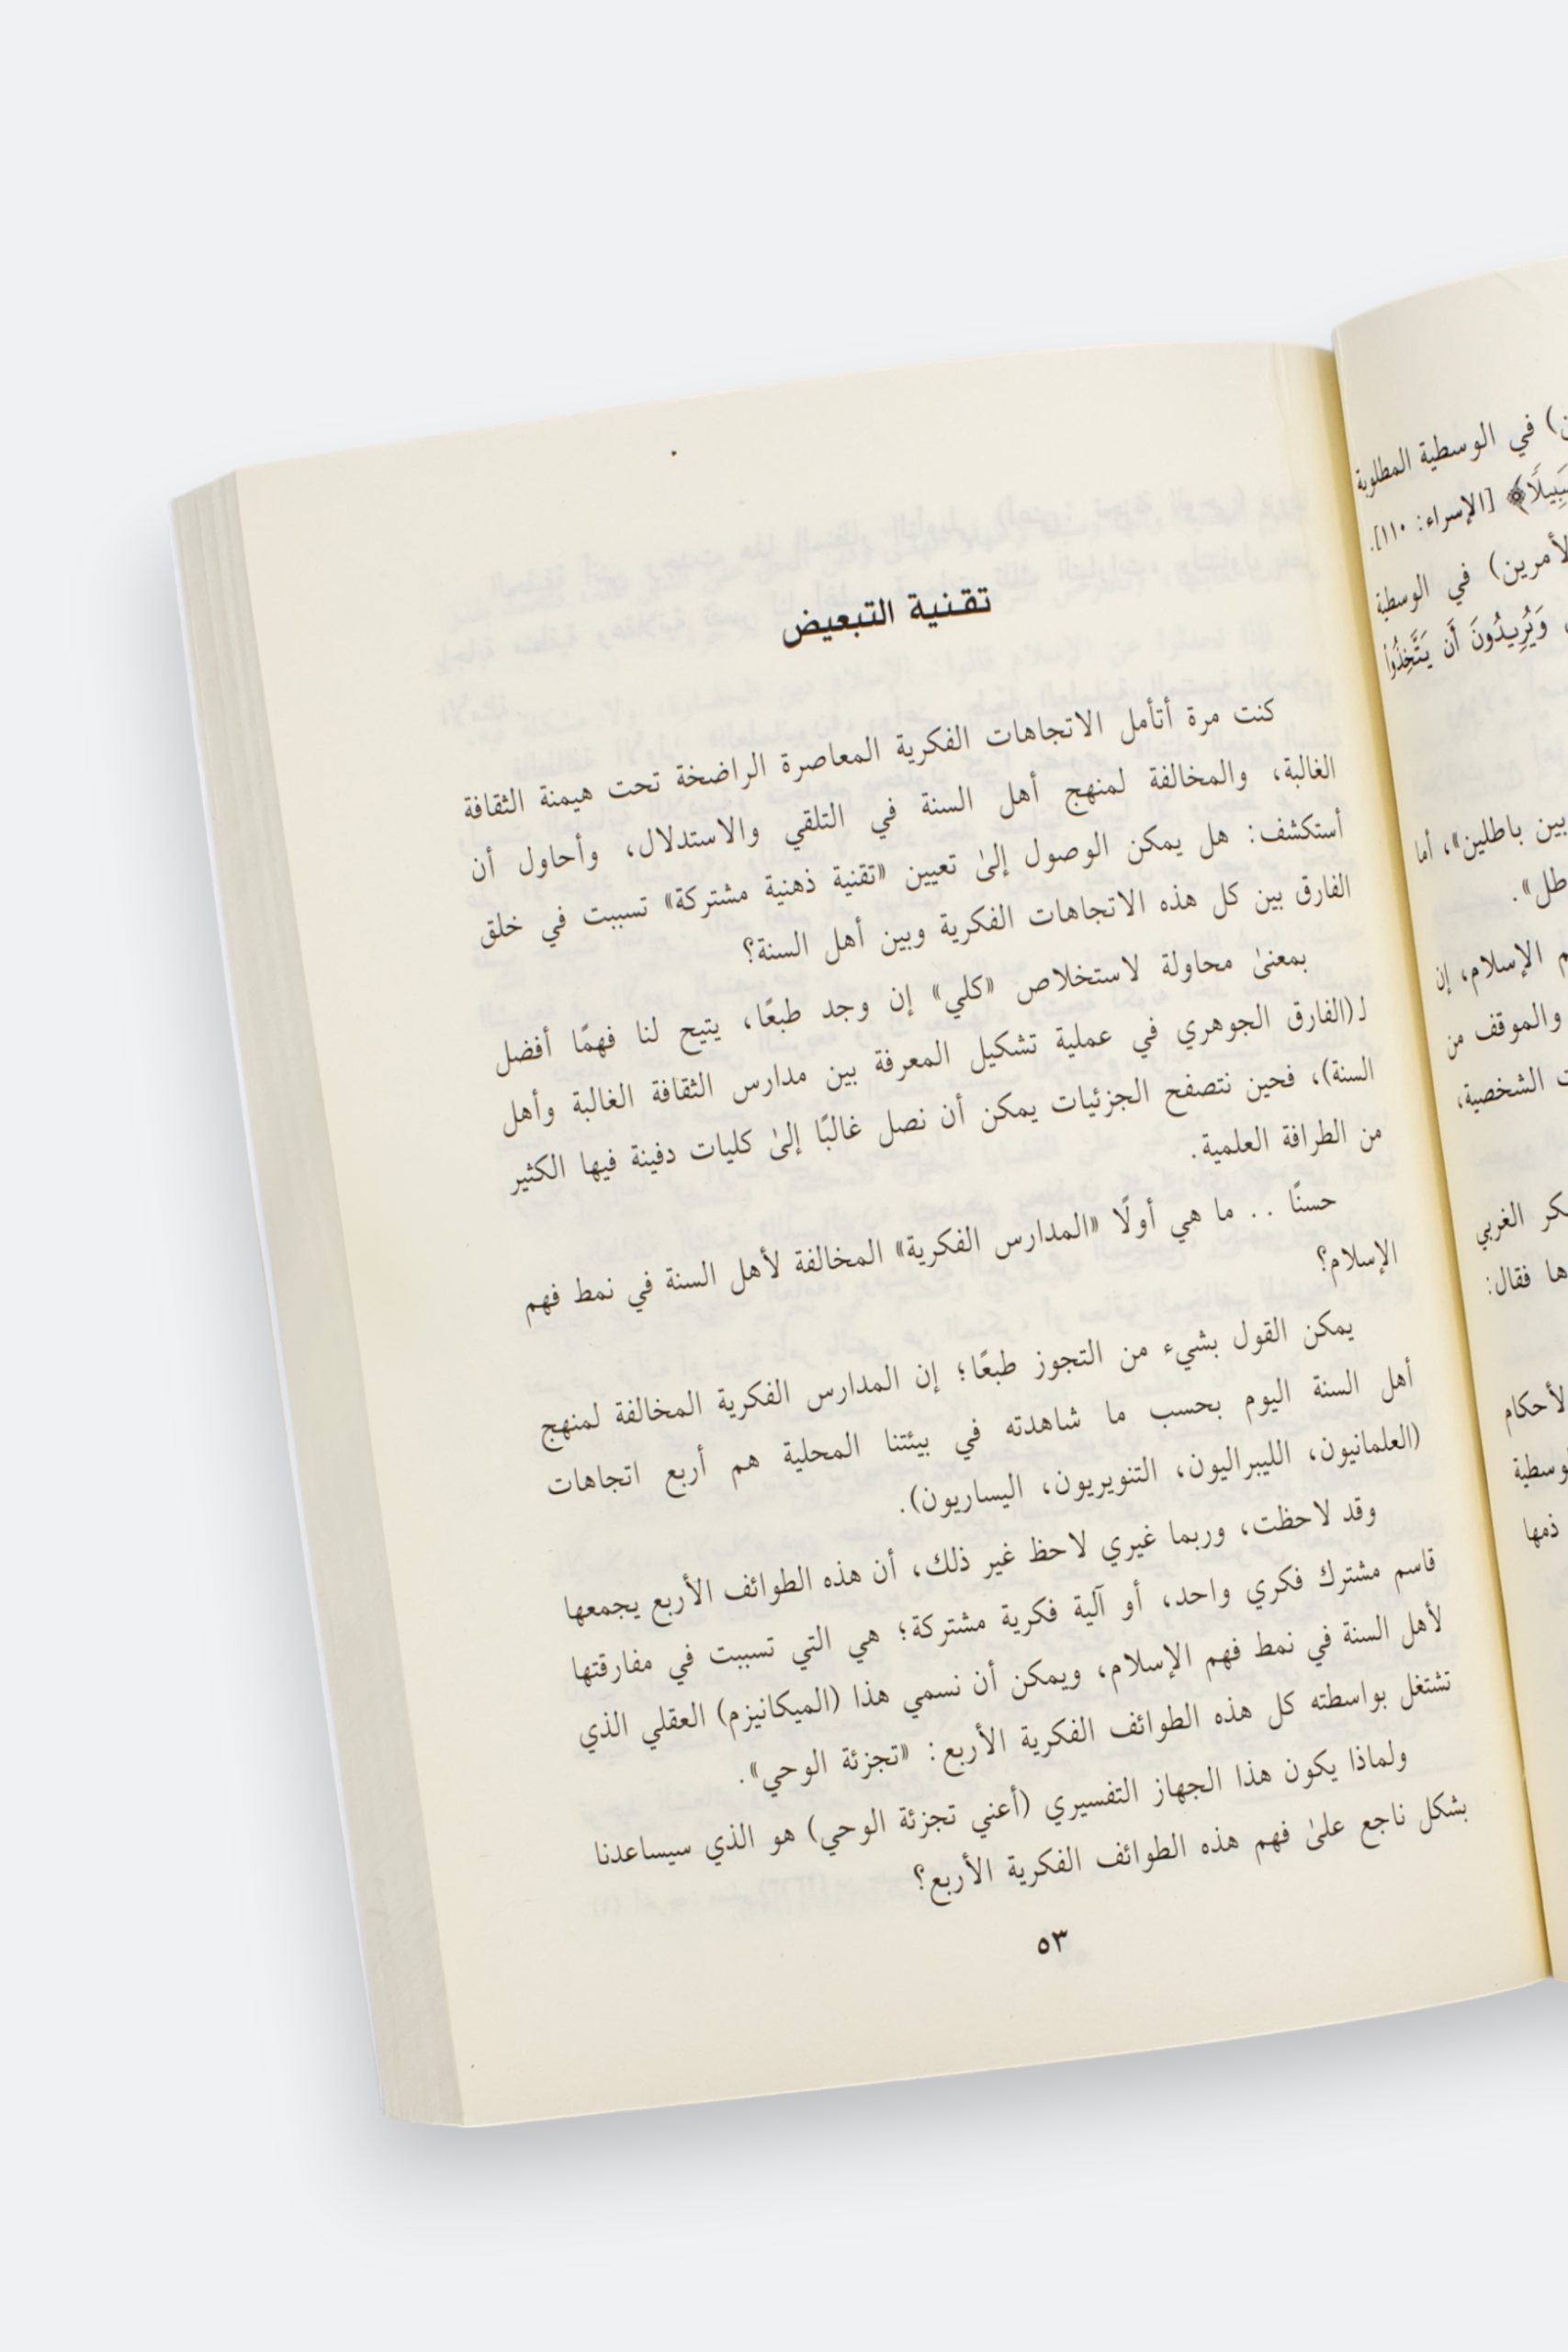 ن) في الوسطية المطلوبة
سَبِيلًا﴾ [الإسراء: ١١٠].
الأمرين) في الوسطية
وَيُرِيدُونَ أَن يَتَّخِذُوا
بين باطلين»، أما
طل».
م الإسلام، إن
والموقف من
ت الشخصية،
كر الغربي
ها فقال:
لأحكام
وسطية
ذمها
تقنية التبعيض
كنت مرة أتأمل الاتجاهات الفكرية المعاصرة الراضخة تحت هيمنة الثقافة
الغالبة، والمخالفة لمنهج أهل السنة في التلقي والاستدلال، وأحاول أن
أستكشف: هل يمكن الوصول إلىٰ تعيين «تقنية ذهنية مشتركة» تسببت في خلق
الفارق بين كل هذه الاتجاهات الفكرية وبين أهل السنة؟
بمعنىٰ محاولة لاستخلاص «كلي» إن وجد طبعًا، يتيح لنا فهمًا أفضل
لـ(الفارق الجوهري في عملية تشكيل المعرفة بين مدارس الثقافة الغالبة وأهل
السنة)، فحين نتصفح الجزئيات يمكن أن نصل غالبًا إلىٰ كليات دفينة فيها الكثير
من الطرافة العلمية.
حسنًا .. ما هي أولًا «المدارس الفكرية» المخالفة لأهل السنة في نمط فهم
الإسلام؟
يمكن القول بشيء من التجوز طبعًا؛ إن المدارس الفكرية المخالفة لمنهج
أهل السنة اليوم بحسب ما شاهدته في بيئتنا المحلية هم أربع اتجاهات
(العلمانيون، الليبراليون، التنويريون، اليساريون).
وقد لاحظت، وربما غيري لاحظ غير ذلك، أن هذه الطوائف الأربع يجمعها
قاسم مشترك فكري واحد، أو آلية فكرية مشتركة؛ هي التي تسببت في مفارقتها
لأهل السنة في نمط فهم الإسلام، ويمكن أن نسمي هذا (الميكانيزم) العقلي الذي
تشتغل بواسطته كل هذه الطوائف الفكرية الأربع: «تجزئة الوحي».
ولماذا يكون هذا الجهاز التفسيري (أعني تجزئة الوحي) هو الذي سيساعدنا
بشكل ناجع علىٰ فهم هذه الطوائف الفكرية الأربع؟
٥٣